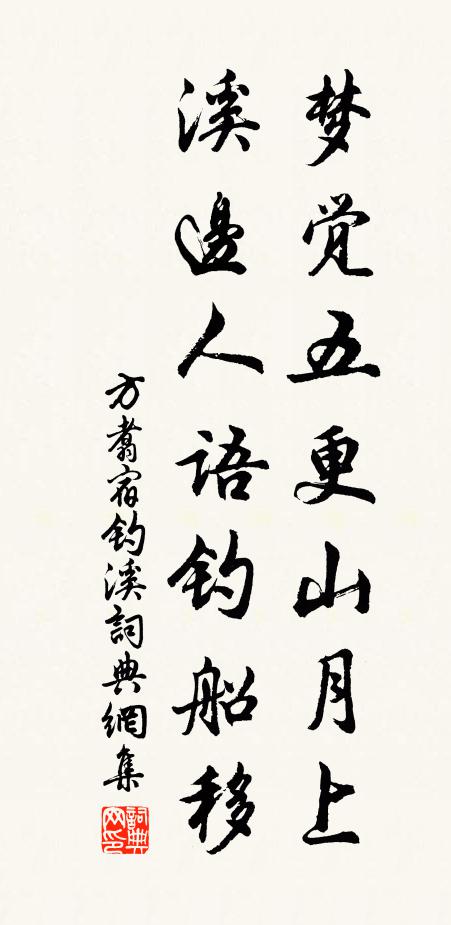 梦觉五更山月上
溪邊人语钓船移
方翥宿钓溪詞典網集
詞典网印